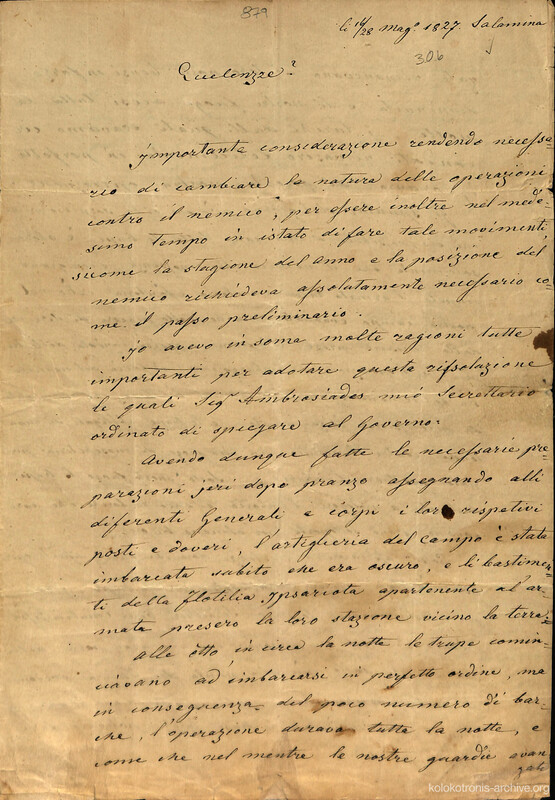 879
li 16/28 Mago. 1827. Salamina
306
Eccelenzze?
Jmportante considerazione rendendo necessa-
rio di cambiare la natura delle operazioni
contro il nemico, per essere inoltre nel mede-
simo tempo in istato di fare tale movimenti
sicome la stagione del anno e la posizione del
nemico richiedeva assolutamente necessario co-
me il passo preliminario.
Jo avevo in soma molte ragioni tutte
importanti per adotare questa rissoluzione
le quali Sigr Ambrosiades mió Secrettario
ordinato di spiegare al Governo.
Avendo dunque fatte le necessarie pre-
parazioni jeri dopo pranzo assegnando alli
differenti Generali e corpi i loro rispetivi
posti e doveri, l'artiglieria del campo è stata
imbarcata subito che era oscuro, e li bastimen-
ti della flotilia Ypsariota apartenente al ar-
mata presero la loro stazione vicino la terra.
Alle otto in circa la notte le trupe comin-
ciavano ad imbarcarsi in perfetto ordine, ma
in conseguenza del poco numero di bar-
che, l'operazione durava tutta la notte, e
come che nel mentre le nostre guardie avan-
zate
kolokotronis-archive.org